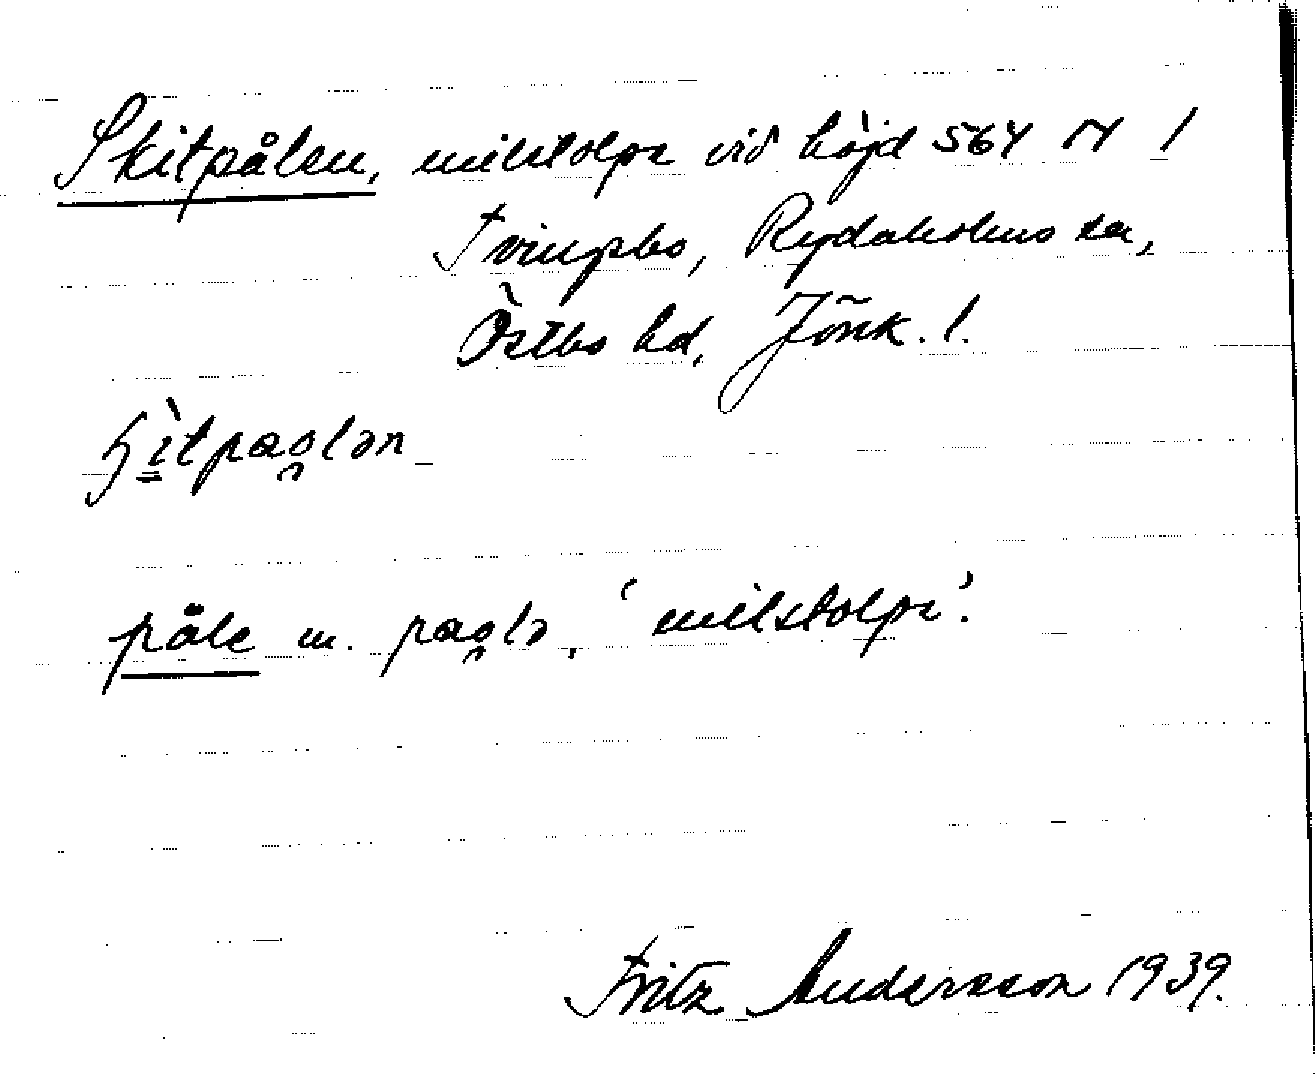 Skitpålen, milstolpe vid höjd 564 N /
Tvingsbo, Rydaholms sn,
Östbo hd, Jönk. l.
ʂìtpaolən
påle m. paolə, 'milstolpe'.
Fritz Andersson 1939.